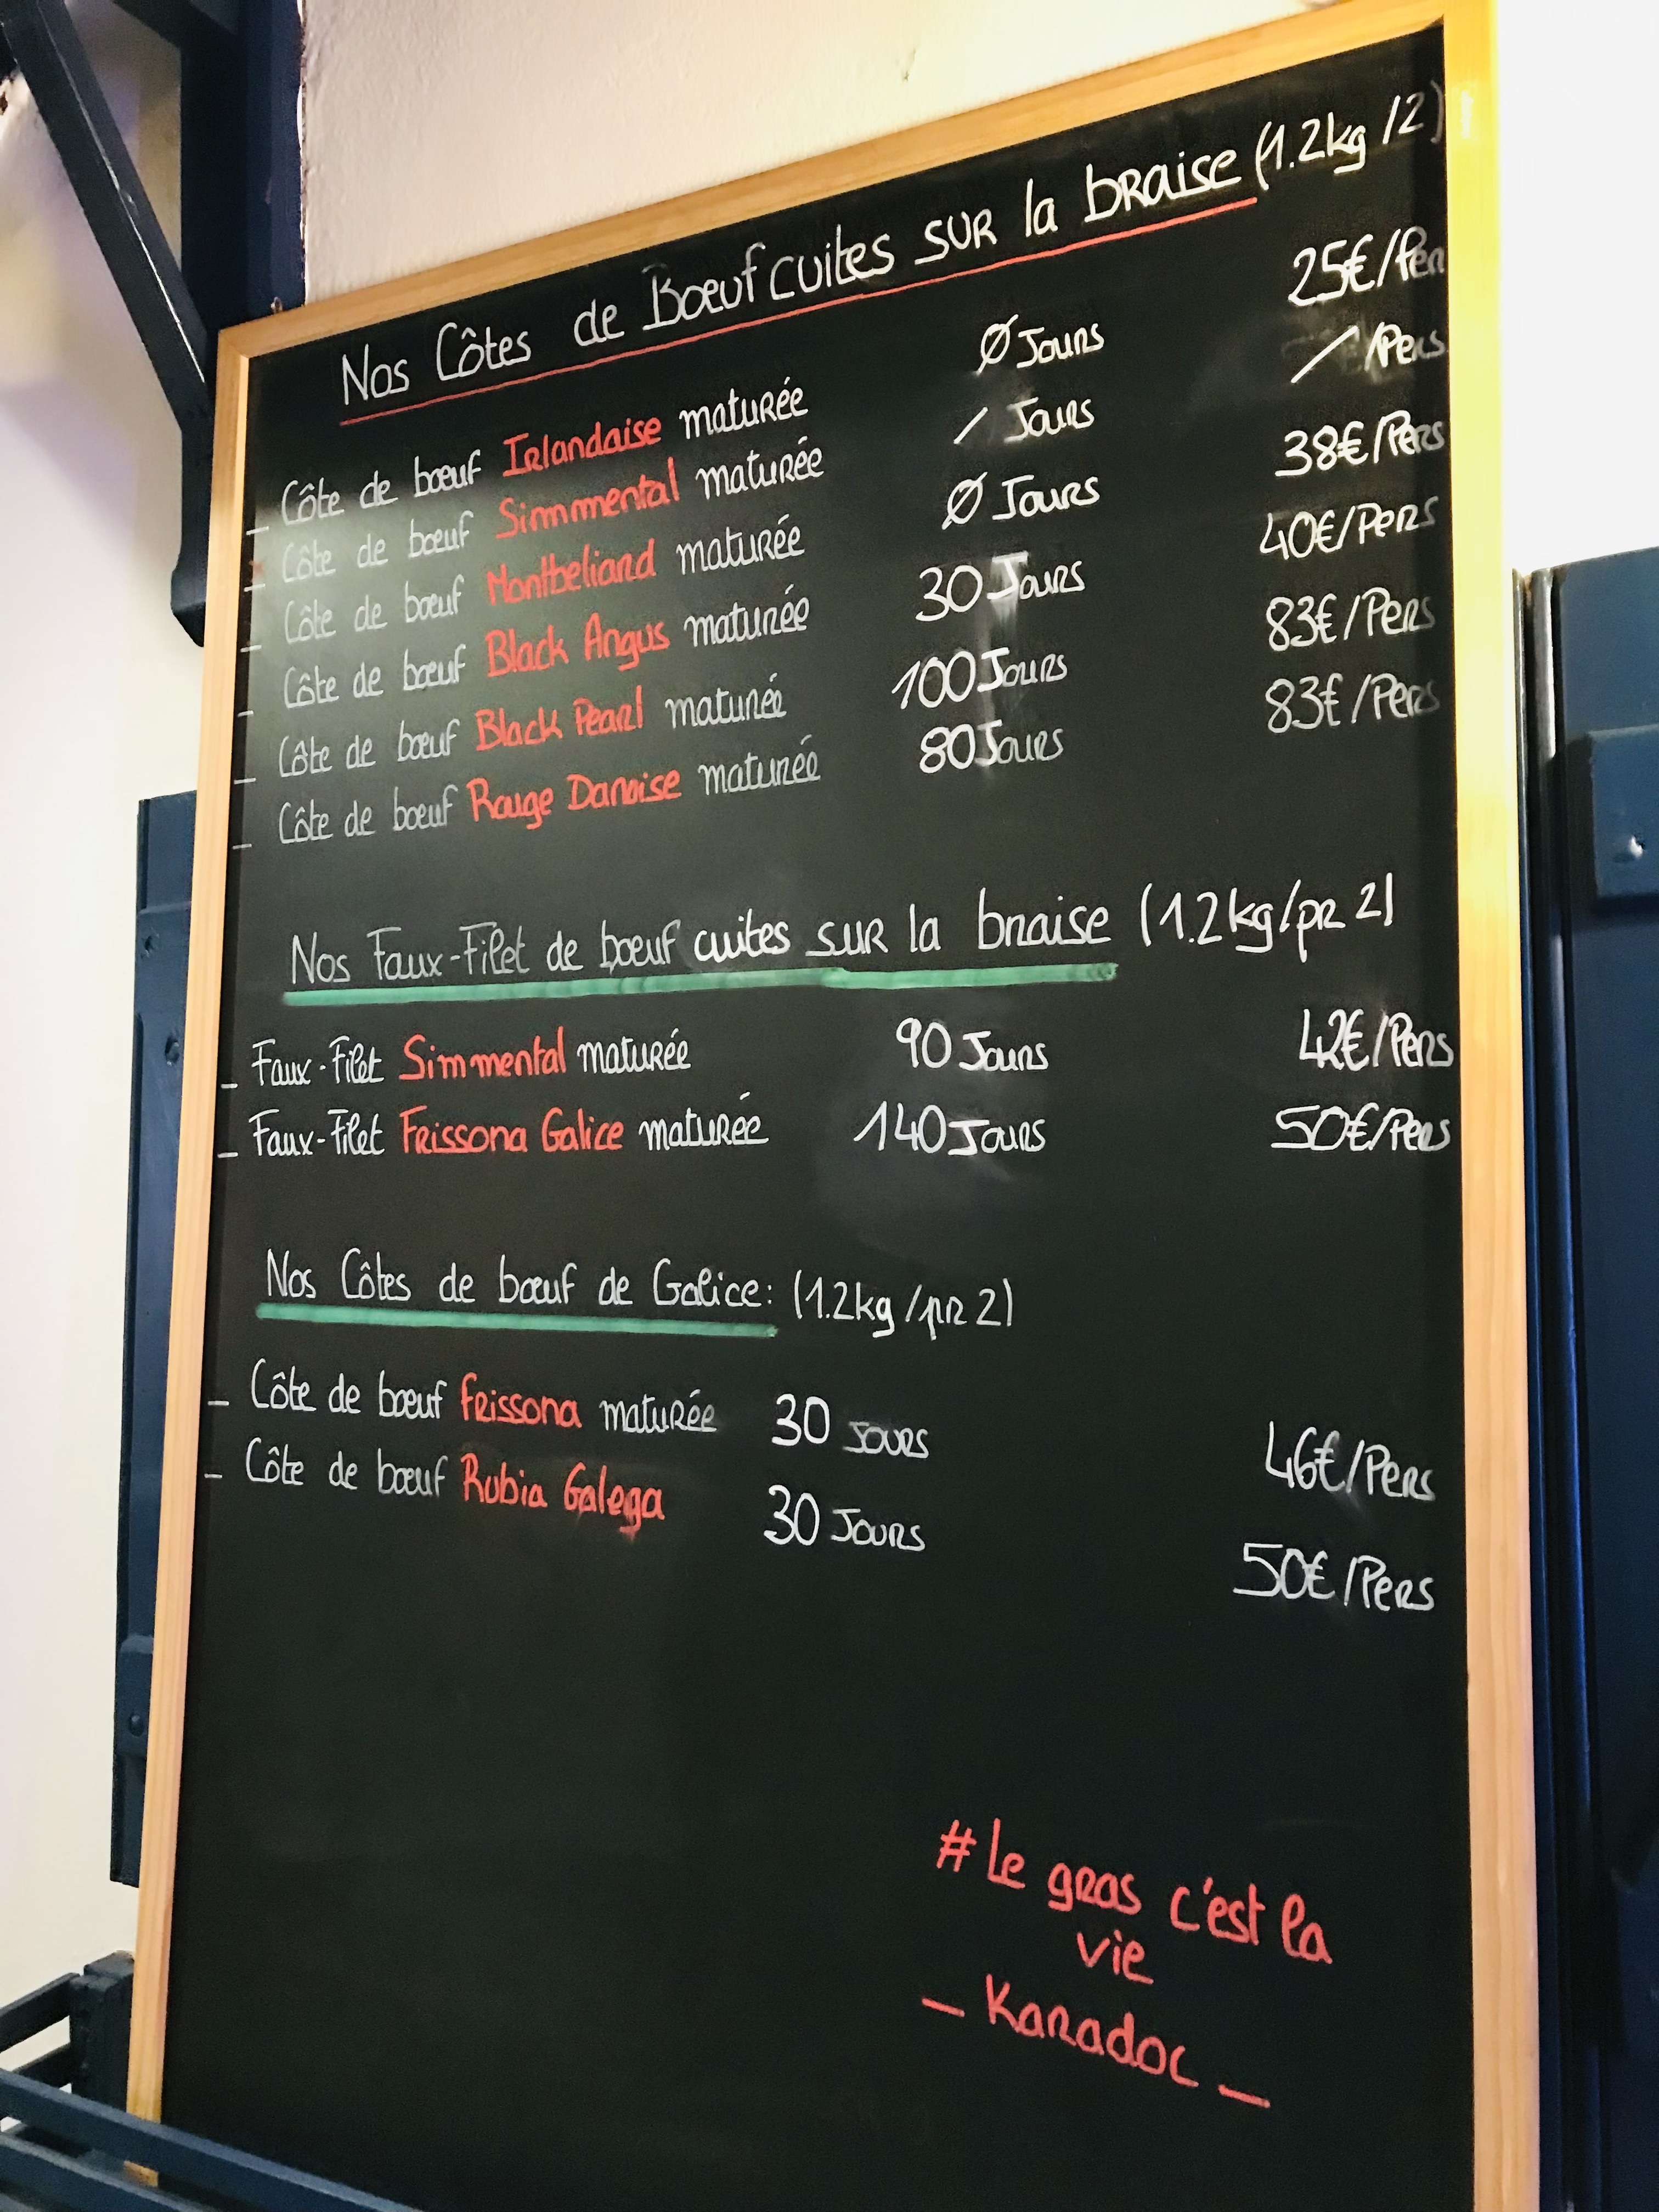 Nos Côtes de Bœuf cuites sur la braise (1.2kg /2)
_ Côte de bœuf Irlandaise maturée Ø Jours 25€/Per
_ Côte de bœuf Simmental maturée / Jours / /Pers
_ Côte de bœuf Montbeliard maturée Ø Jours 38€/Pers
_ Côte de bœuf Black Angus maturée 30 Jours 40€/Pers
_ Côte de bœuf Black Pearl maturée 100 Jours 83€/Pers
_ Côte de bœuf Rouge Danoise maturée 80 Jours 83€/Pers
Nos Faux-Filet de bœuf cuites sur la braise (1.2kg/pr 2)
_ Faux-Filet Simmental maturée 90 Jours 42€/Pers
_ Faux-Filet Frissona Galice maturée 140 Jours 50€/Pers
Nos Côtes de bœuf de Galice: (1.2kg /pr 2)
_ Côte de bœuf Frissona maturée 30 Jours 46€/Pers
_ Côte de bœuf Rubia Galega 30 Jours 50€/Pers
# Le gras c'est la
vie
_ Karadoc _